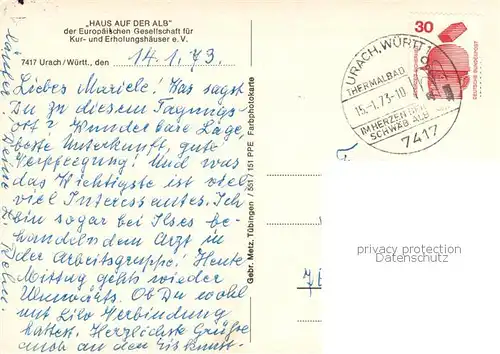 „HAUS AUF DER ALB"
der Europäischen Gesellschaft für
Kur- und Erholungshäuser e.V.
7417 Urach/Württ., den 14.1.73.
Liebes Mariele! Was sagst
Du zu diesem Tagungs-
ort? Wunderbare Lage
beste Unterkunft, gute
Verpflegung! Und was
das Wichtigste ist viel
viel Interessantes. Ich
bin sogar bei Ilses be-
handelndem Arzt in
der Arbeitsgruppe! Heute
Mittag gehts wieder
Ob Du wohl
mit Lilo Verbindung
hattest. Herzlichste Grüße
auch an den
Gebr. Metz, Tübingen / 551 / 151 PPE Farbphotokarte
30
URACH, WÜRTT 1
THERMALBAD
15.-1.73-10
IM HERZEN DER
SCHWÄB ALB
7417
DEUTSCHE BUNDESPOST
privacy protection
Datenschutz